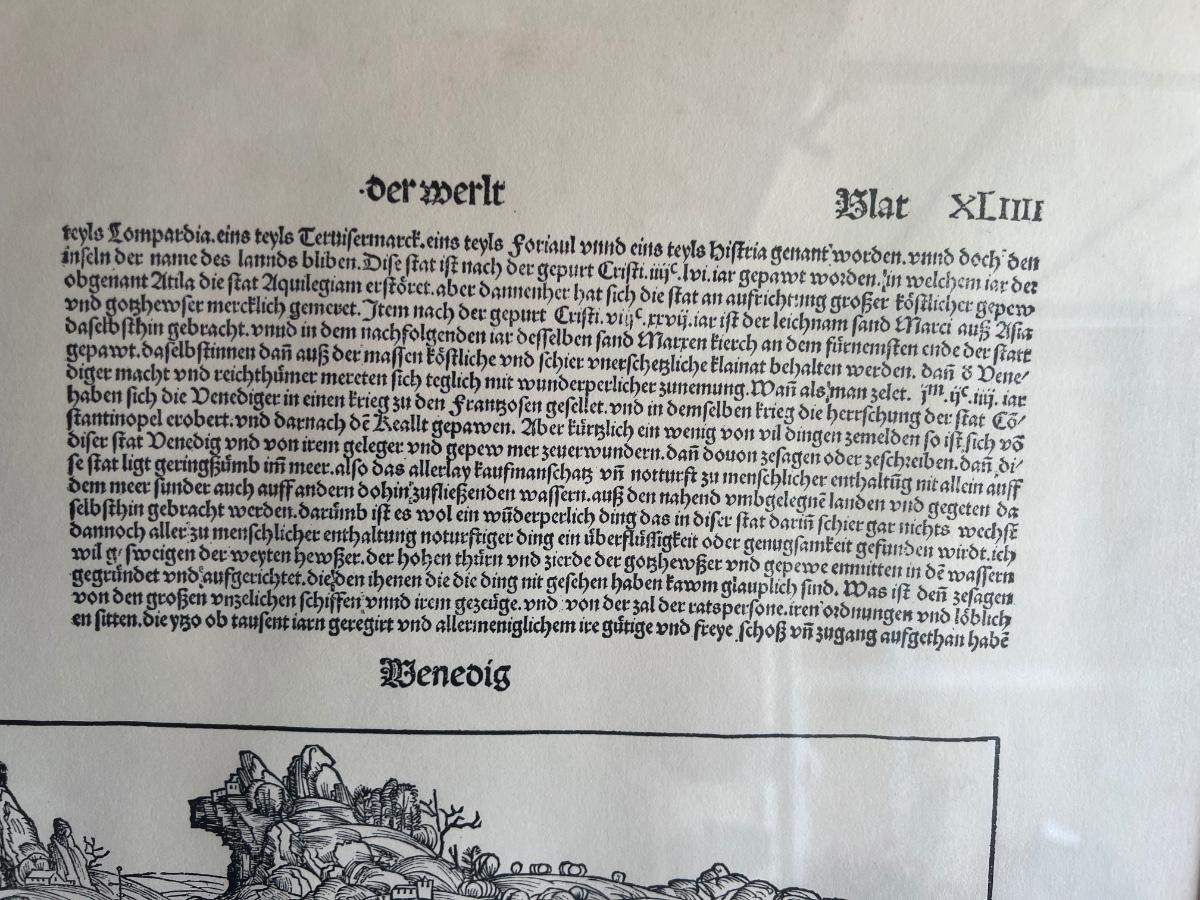 ·der werlt
Blat XLIIII
teyls Lompardia.eins teyls Teruisermarck.eins teyls Foriaul vnnd eins teyls Histria genant worden.vnnd doch den
inseln der name des lannds bliben.Dise stat ist nach der gepurt Cristi.iiijᶜ.lvi.iar gepawt worden.in welchem iar der
obgenant Atila die stat Aquilegiam erstöret.aber dannenher hat sich die stat an aufrichtung großer köstlicher gepew
vnd gotzhewser mercklich gemeret. Item nach der gepurt Cristi.viijᶜ.xxvij.iar ist der leichnam sand Marci auß Asia
daselbsthin gebracht.vnnd in dem nachfolgenden iar desselben sand Marxen kierch an dem fürnemsten ende der statt
gepawt.daselbstinnen dañ auß der massen köstliche vnd schier vnerschetzliche klainat behalten werden. dañ õ Vene/
diger macht vnd reichthümer mereten sich teglich mit wunderperlicher zunemung.Wañ als man zelet. jᵐ.ijᶜ.iiij. iar
haben sich die Venediger in einen krieg zu den Frantzosen gesellet.vnd in demselben krieg die herrschung der stat Cõ/
stantinopel erobert.vnd darnach dẽ Reallt gepawen. Aber kürtzlich ein wenig von vil dingen zemelden so ist sich võ
diser stat Venedig vnd von irem geleger vnd gepew mer zeuerwundern.dañ douon zesagen oder zeschreiben.dañ di/
se stat ligt geringßümb im̃ meer.also das allerlay kaufmanschatz vñ notturft zu menschlicher enthaltũg nit allein auff
dem meer sunder auch auff andern dohin zufließenden wassern.auß den nahend vmbgelegnẽ landen vnd gegeten da
selbsthin gebracht werden.darümb ist es wol ein wũderperlich ding das in diser stat dariñ schier gar nichts wechst
dannoch aller zu menschlicher enthaltung noturftiger ding ein überflüssigkeit oder genugsamkeit gefunden wirdt.ich
wil gesweigen der weyten hewßer.der hohen thürn vnd zierde der gotzhewßer vnd gepewe enmitten in dẽ wassern
gegründet vnd aufgerichtet.die den ihenen die die ding nit gesehen haben kawm glauplich sind. Was ist deñ zesagen
von den großen vnzelichen schiffen vnnd irem gezeüge.vnd von der zal der ratspersone.iren ordnungen vnd löblich
en sitten.die ytzo ob tausent iarn geregirt vnd allermeniglichem ire gütige vnd freye schoß vñ zugang aufgethan habẽ
Venedig